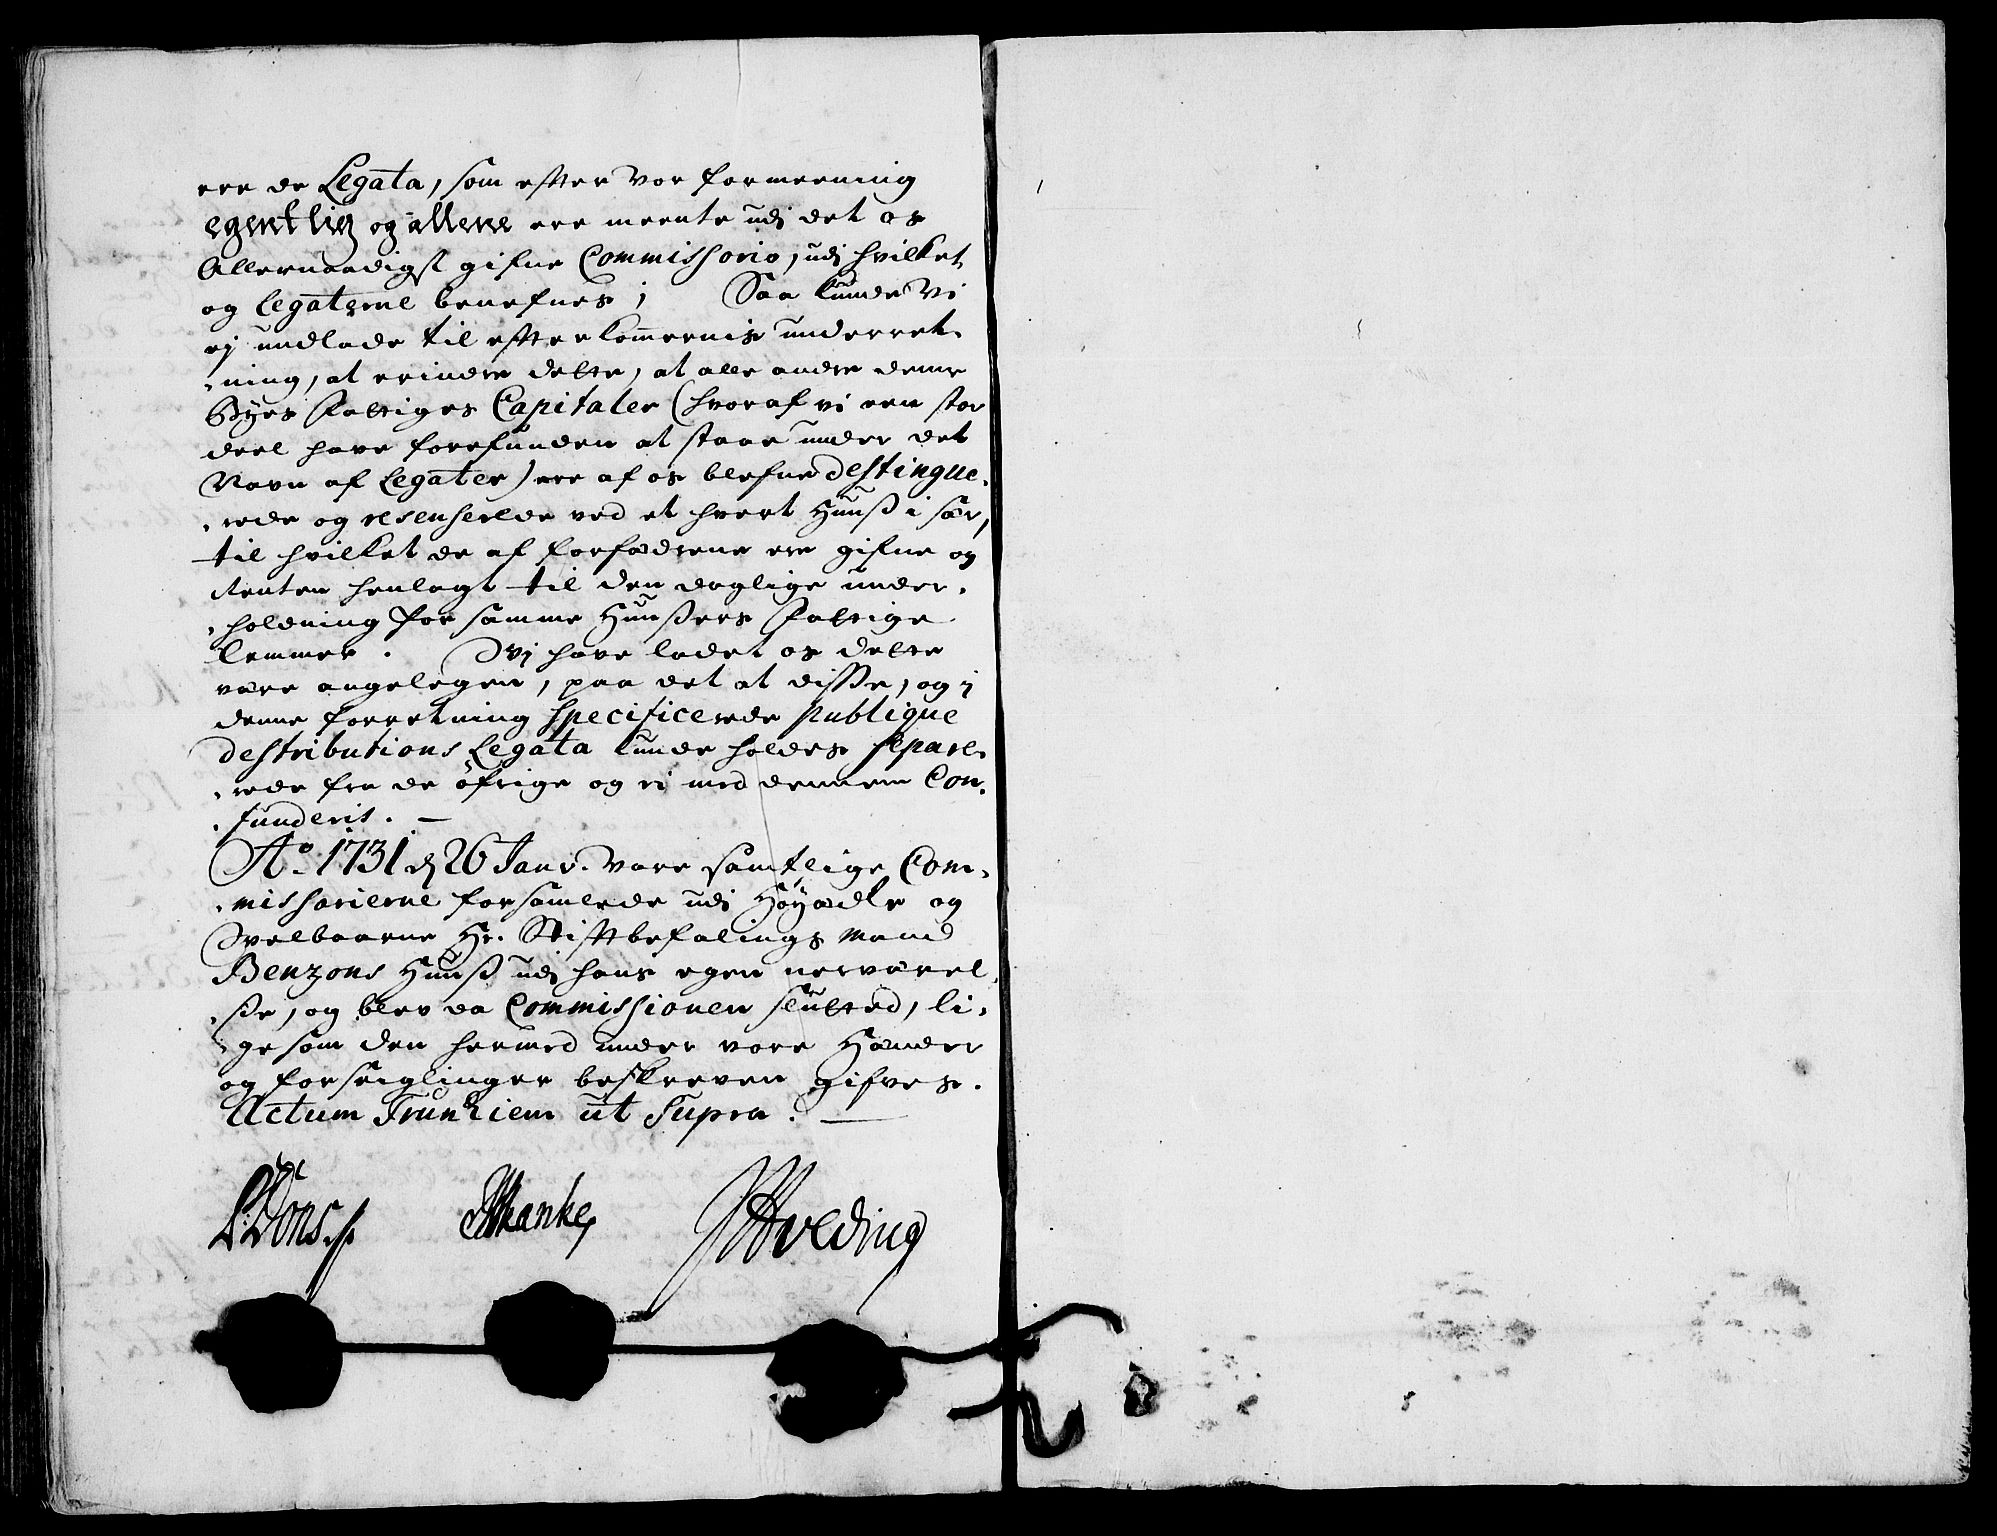 ere de Legata, som efter vor formeening
egentlig og allene ere meente udj det os
Allernaadigst gifne Commissorio, udj hvilket
og Legaterne benefnes; Saa kunde Vi
ej undlade til efterkommernis underret-
-ning, at erindre dette, at alle andre denne
Byes Fattiges Capitaler (hvoraf vi een stor
deel have forefunden at staae under det
Navn af Legater) ere af os blefne destingue-
-rede og resenserede ved et hvert Huuss i sær,
til hvilket de af forfædrene ere gifne og
Renten henlagt til den daglige under-
-holdning for samme Huussers Fattige
Lemmer. Vj have ladet os dette
være angelegen, paa det at disse, og j
denne forretning specificerede publique
destributions Legata kunde holdes separe-
-rede fra de öfrige og ei med dennem Con-
-funderis. —
Ao. 1731 d 26 Janv. vare samtlige Com-
-missarierne forsamlede udj Höyædle og
Velbaarne Hr. Stiftbefalings Mand
Benzons Huuss udj hans egen nerværel-
-sse, og blev da Commissionen slutted, li-
-ge som den hermed under vore Hænder
og forseiglinger beskreven gifves.
Actum Trunhiem ut supra. —
Dons Hveding